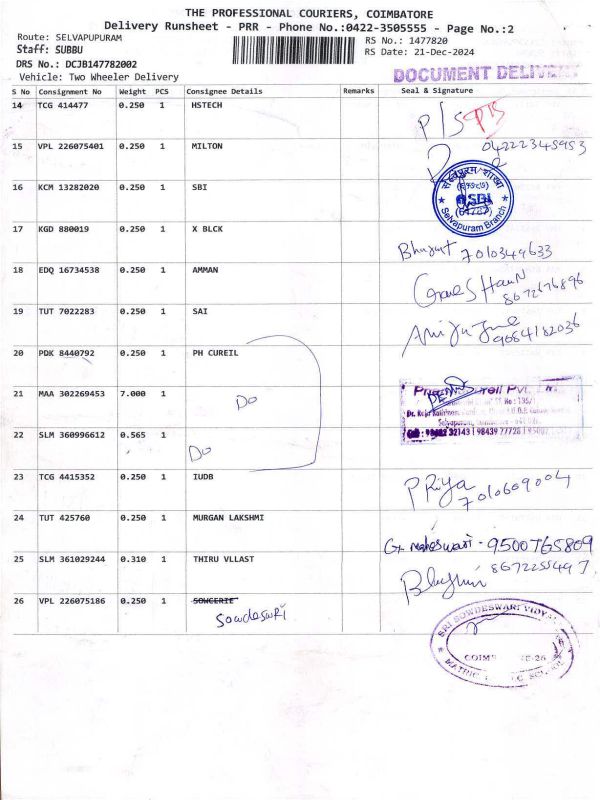 THE PROFESSIONAL COURIERS, COIMBATORE
Delivery Runsheet - PRR - Phone No.:0422-3505555 - Page No.:2
Route: SELVAPUPURAM
RS No.: 1477820
Staff: SUBBU
RS Date: 21-Dec-2024
DRS No.: DCJB147782002
DOCUMENT DELIVERY
Vehicle: Two Wheeler Delivery
S No Consignment No Weight PCS Consignee Details Remarks Seal & Signature
14 TCG 414477 0.250 1 HSTECH
P/S P/S
15 VPL 226075401 0.250 1 MILTON
04222345953
16 KCM 13282020 0.250 1 SBI
SBI
Selvapuram Branch
17 KGD 880019 0.250 1 X BLCK
7010349633
18 EDQ 16734538 0.250 1 AMMAN
8672676896
19 TUT 7022283 0.250 1 SAI
9664182036
20 PDK 8440792 0.250 1 PH CUREIL
21 MAA 302269453 7.000 1 Do
22 SLM 360996612 0.565 1 Do
23 TCG 4415352 0.250 1 IUDB
PRiya 7010609004
24 TUT 425760 0.250 1 MURGAN LAKSHMI
G. maheswari - 9500765809
25 SLM 361029244 0.310 1 THIRU VLLAST
26 VPL 226075186 0.250 1 SOWCERIE
Sowdeswri
SRI SOWDESWARI